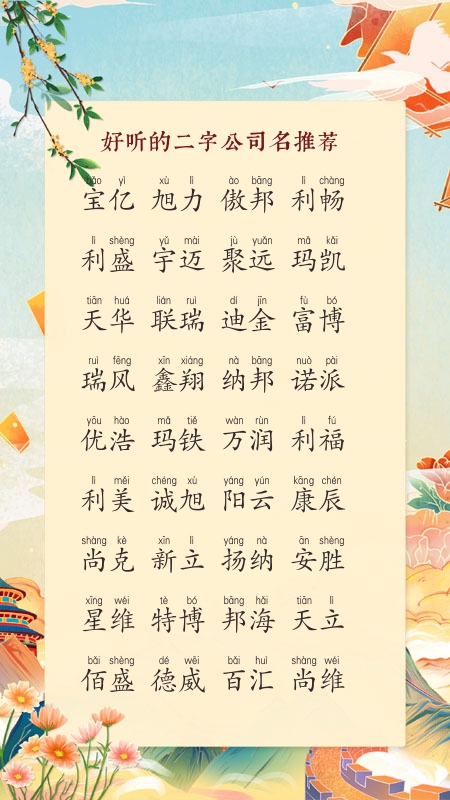 好听的二字公司名推荐
bǎo yì xù lì ào bāng lì chàng
宝亿 旭力 傲邦 利畅
lì shèng yǔ mài jù yuǎn mǎ kǎi
利盛 宇迈 聚远 玛凯
tiān huá lián ruì dí jīn fù bó
天华 联瑞 迪金 富博
ruì fēng xīn xiáng nà bāng nuò pài
瑞风 鑫翔 纳邦 诺派
yōu hào mǎ tiě wàn rùn lì fú
优浩 玛铁 万润 利福
lì měi chéng xù yáng yún kāng chén
利美 诚旭 阳云 康辰
shàng kè xīn lì yáng nà ān shèng
尚克 新立 扬纳 安胜
xīng wéi tè bó bāng hǎi tiān lì
星维 特博 邦海 天立
bǎi shèng dé wēi bǎi huì shàng wéi
佰盛 德威 百汇 尚维